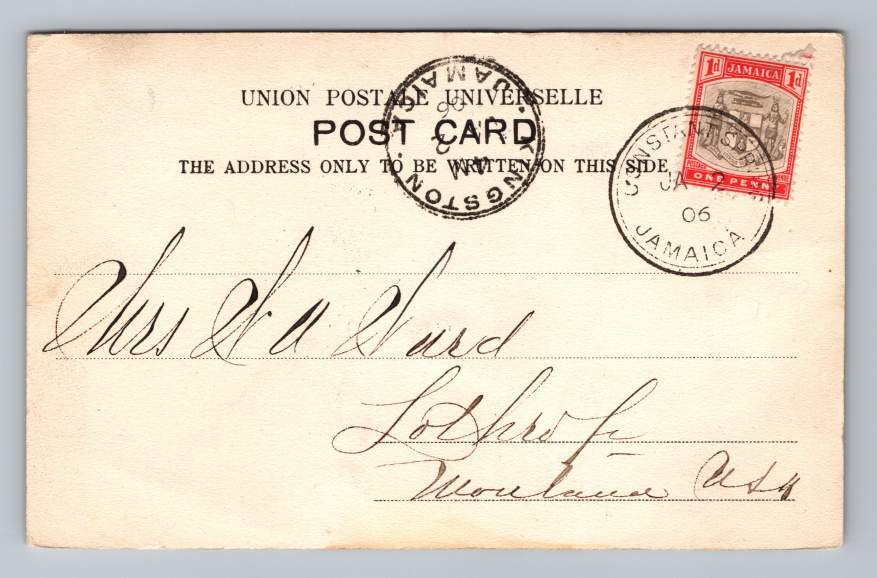 UNION POSTALE UNIVERSELLE
POST CARD
THE ADDRESS ONLY TO BE WRITTEN ON THIS SIDE
KINGSTON · JAMAICA
AM
2
06
1d JAMAICA 1d
ONE PENNY
JA 2
06
JAMAICA
Mrs W A Ward
Lothrop
Montana USA